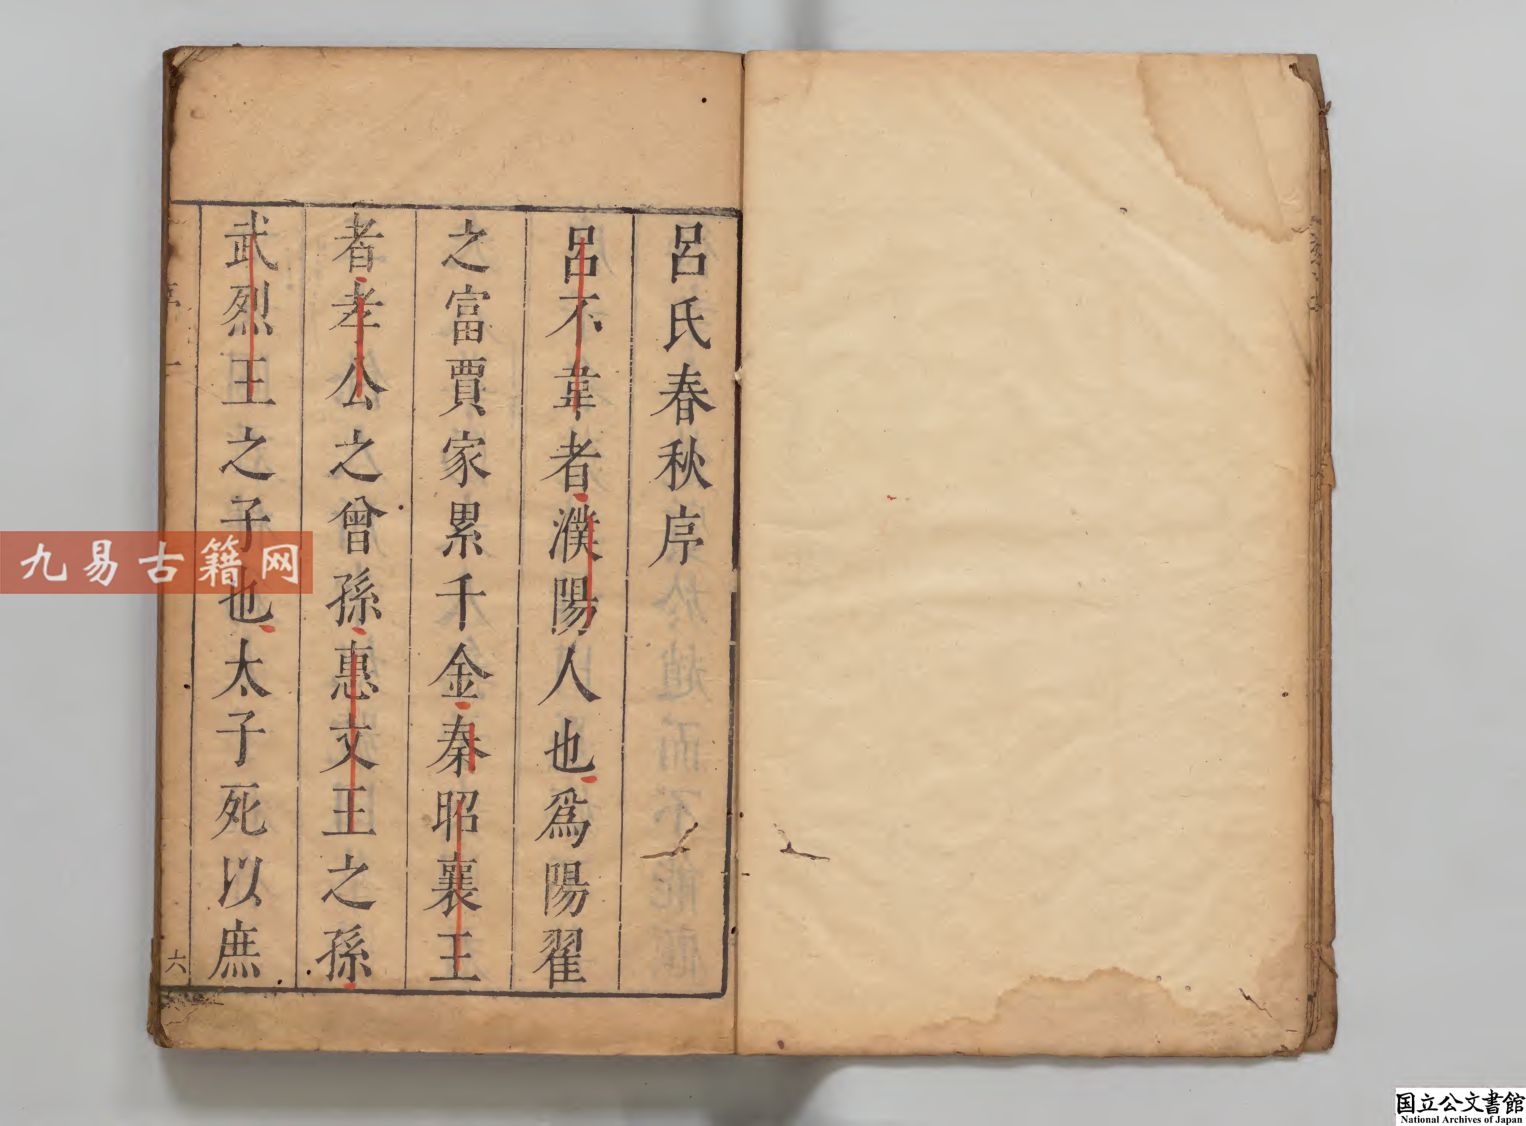 呂氏春秋序
呂不韋者濮陽人也爲陽翟
之富賈家累千金秦昭襄王
者孝公之曾孫惠文王之孫
武烈王之子也太子死以庶
序
一
六
九易古籍网
国立公文書館
National Archives of Japan